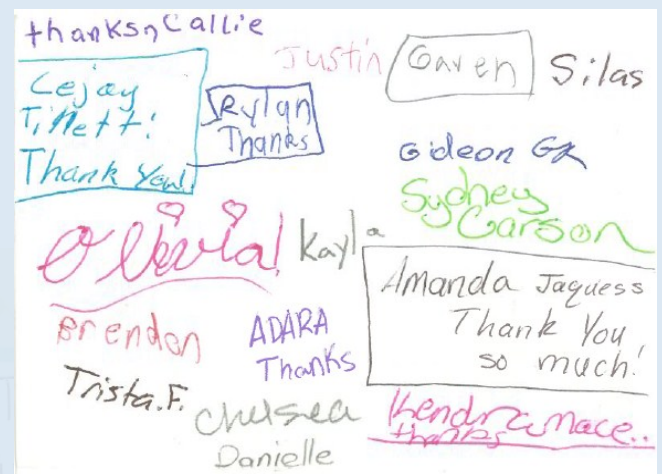 thanksn Callie
Justin
Gaven
Silas
Cejay
Tillett!
Thank You!
Rylan
Thanks
Gideon GR
Sydney
Carson
Olivia!
Kayla
Amanda Jaquess
Thank You
so much!
Brendon
ADARA
Thanks
Trista.F.
Chelsea
Danielle
Kendra mace..
thanks